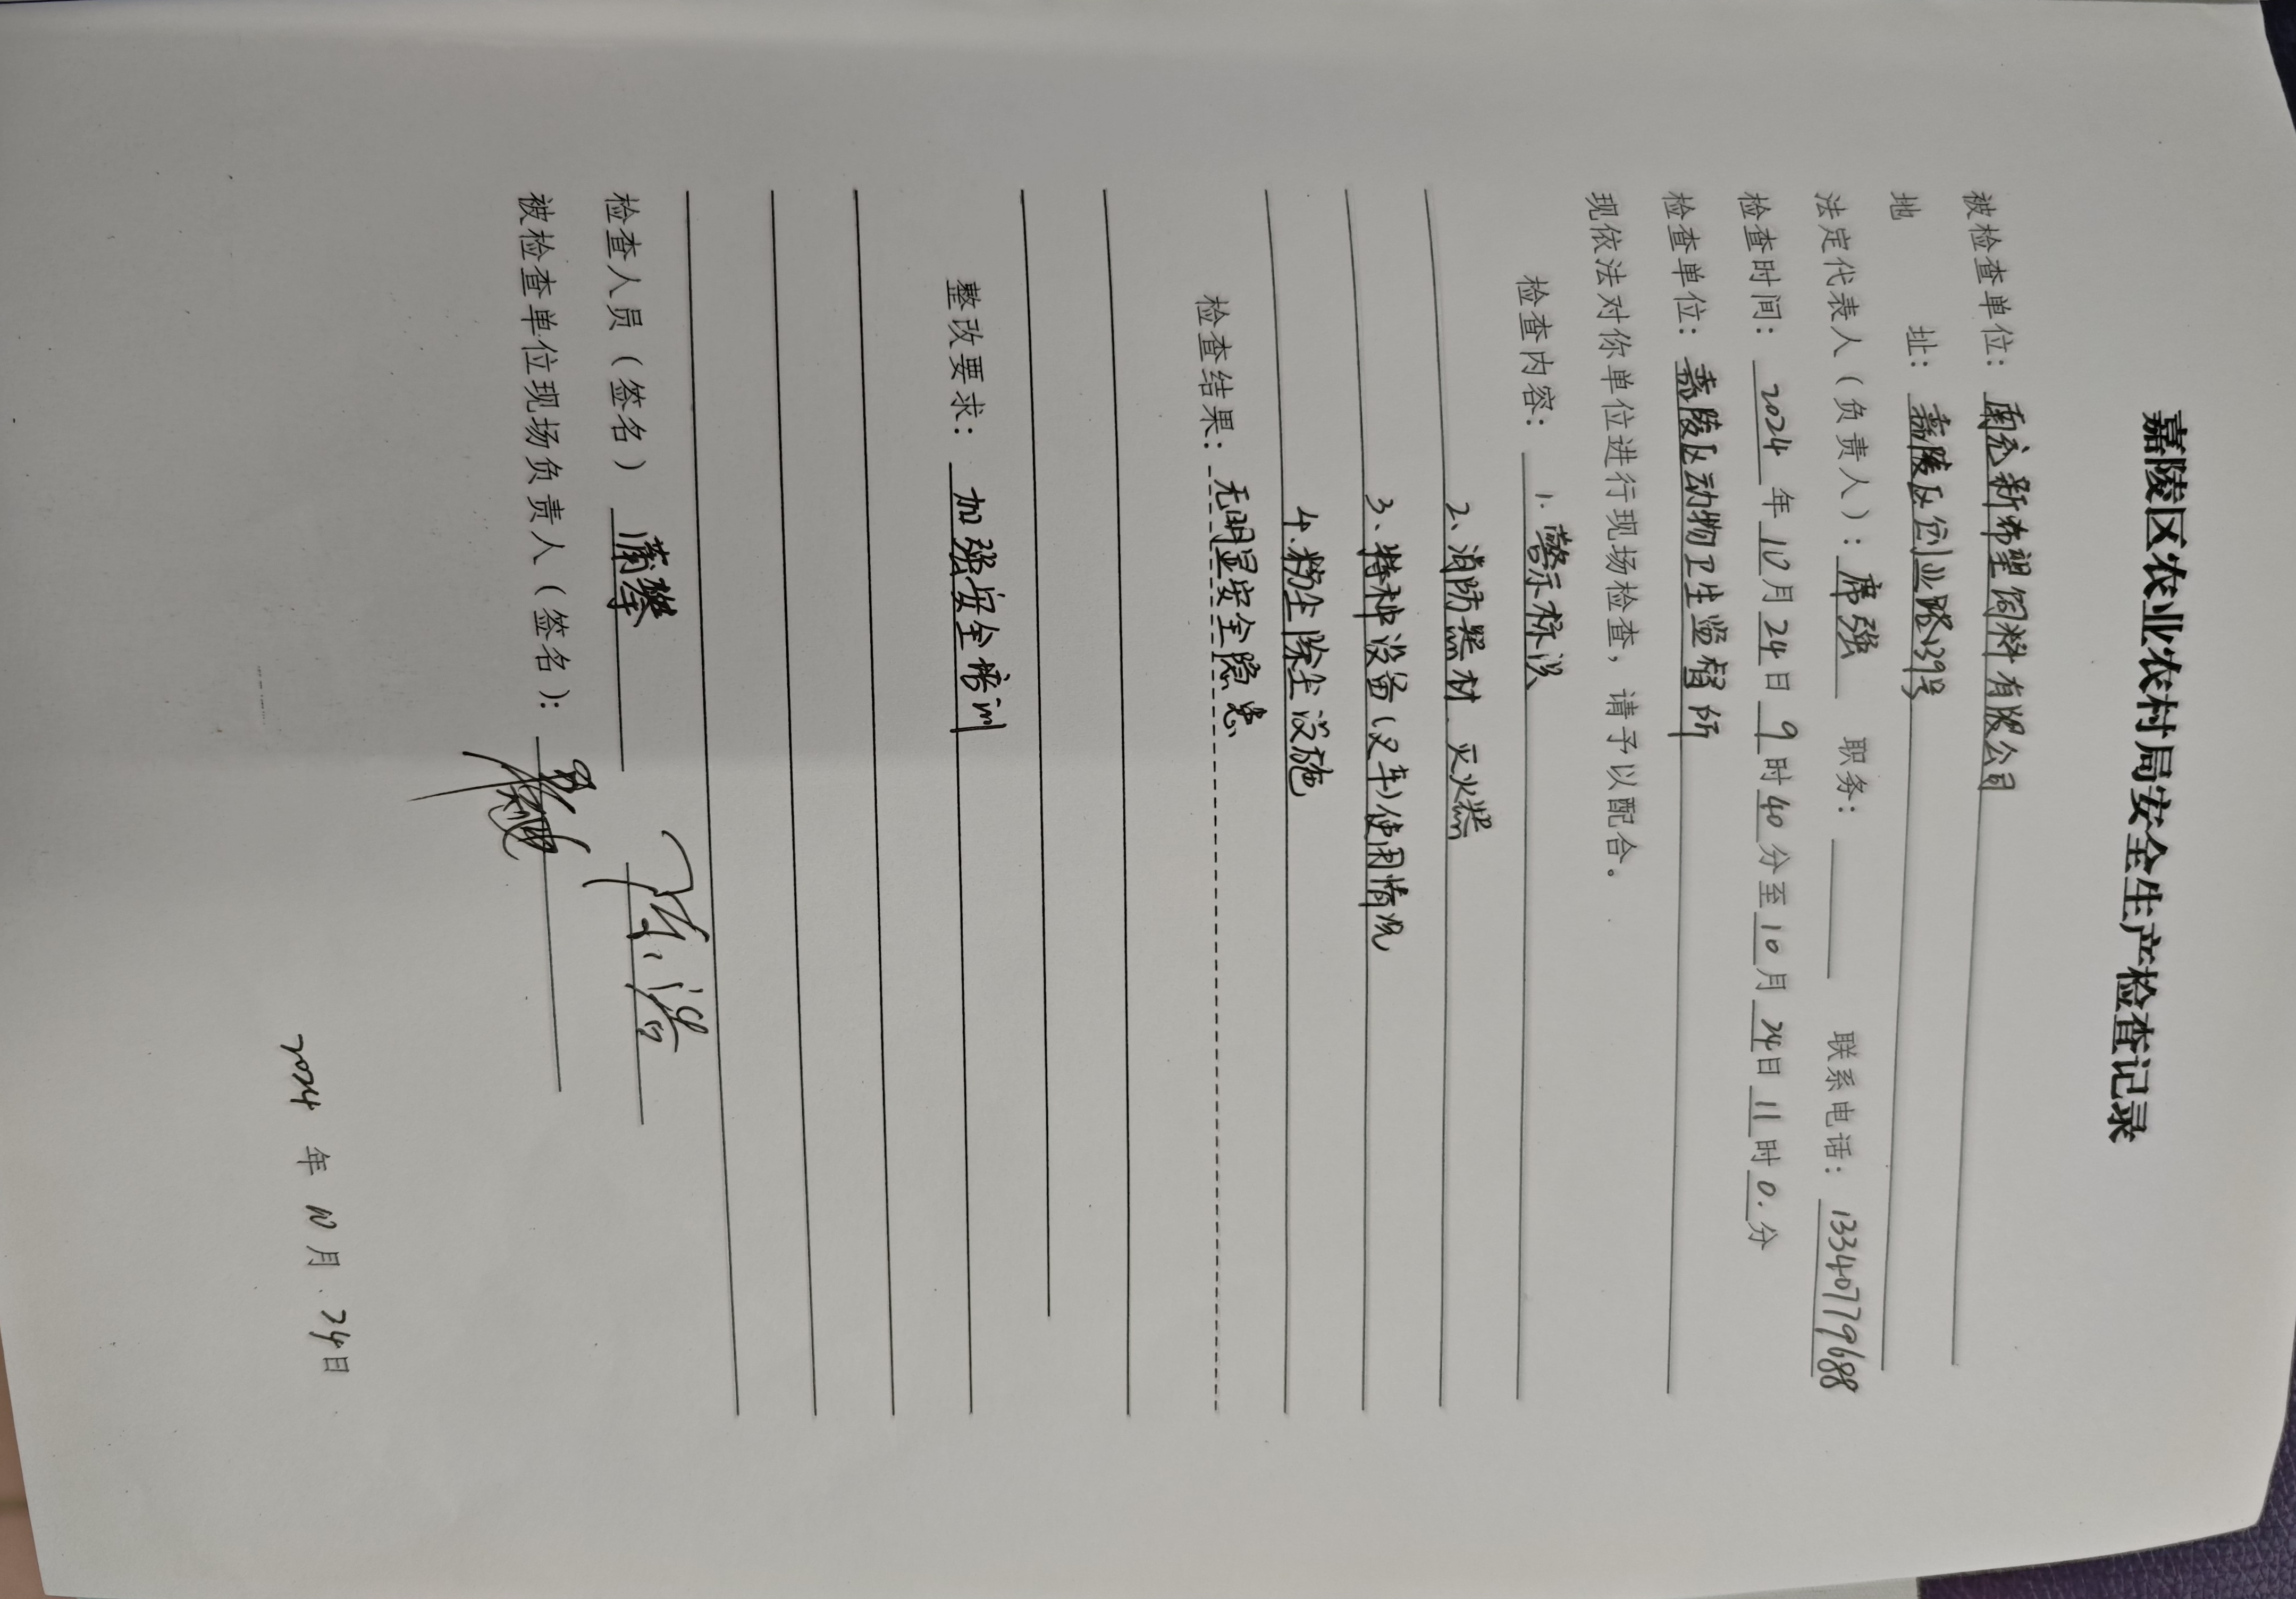 嘉陵区农业农村局安全生产检查记录
被检查单位：南充新希望饲料有限公司
地 址：嘉陵区创业路39号
法定代表人（负责人）：席强 职务： 联系电话：13340779688
检查时间：2024年10月24日9时40分至10月24日11时0.分
检查单位：嘉陵区动物卫生监督所
现依法对你单位进行现场检查，请予以配合。
检查内容：1.警示标识
2、消防器材、灭火器
3、特种设备（叉车）使用情况
4.粉尘除尘设施
检查结果：无明显安全隐患
整改要求：加强安全培训
检查人员（签名）蒲攀
被检查单位现场负责人（签名）：
2024年10月.24日